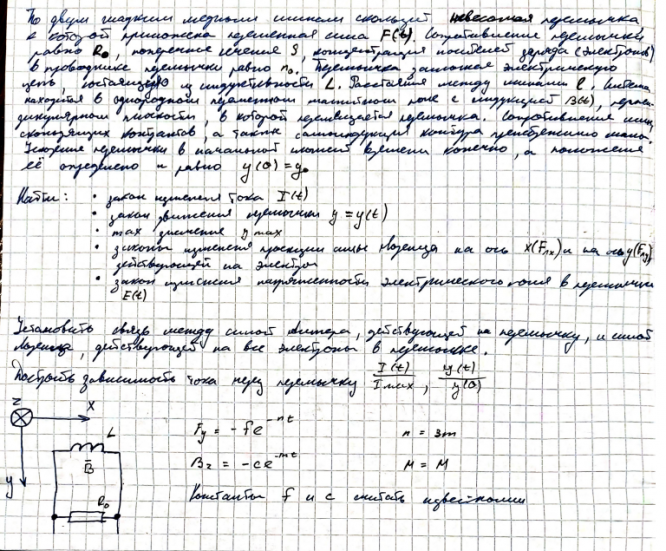 По двум гладким медным шинам скользит невесомая перемычка
к которой приложена переменная сила F(t). Сопротивление перемычки
равно R₀, поперечное сечение S, концентрация носителей заряда (электронов)
в проводнике перемычки равно n₀. Перемычка, замыкая электрическую
цепь, состоящую из индуктивности L. Расстояние между шинами l. Система
находится в однородном переменном магнитном поле с индукцией B(t), перпен-
дикулярном плоскости, в которой перемещается перемычка. Сопротивление шин,
скользящих контактов, а также самоиндукция контура пренебрежимо малы.
Ускорение перемычки в начальный момент времени конечно, а положение
её определено и равно y(0) = y₀
Найти:
• закон изменения тока I(t)
• закон движения перемычки y = y(t)
• max значение y max
• законы изменения проекции силы Лоренца на ось x(Fлx) и на ось y(Fлy)
действующей на электрон
• закон изменения напряженности электрического поля в перемычке
E(t)
Установить связь между силой Ампера, действующей на перемычку, и силой
Лоренца, действующей на все электроны в перемычке.
Построить зависимость тока через перемычку I(t)/Imax, y(t)/y(0)
z
x
L
y
B̄
R₀
Fy = -fe^{-nt}
n = 3m
Bz = -ce^{-mt}
M = M
Константы f и c считать известными